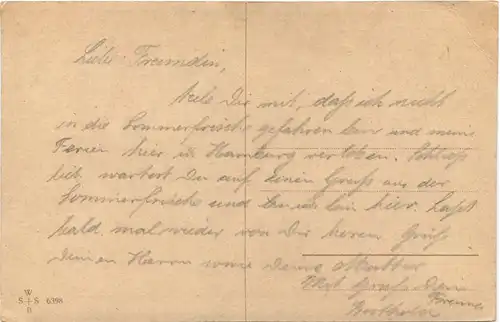 Liebe Freundin,
Teile Dir mit, daß ich nicht
in die Sommerfrische gefahren bin und meine
Ferien hier in Hamburg verleben.
wartest Du auf einen Gruß aus der
Sommerfrische und bin ich hier. Laßt
bald mal wieder von Dir hören. Gruß
deinen Herrn sowie deine Mutter
Mit Gruß Dein
W
S S 6398
B